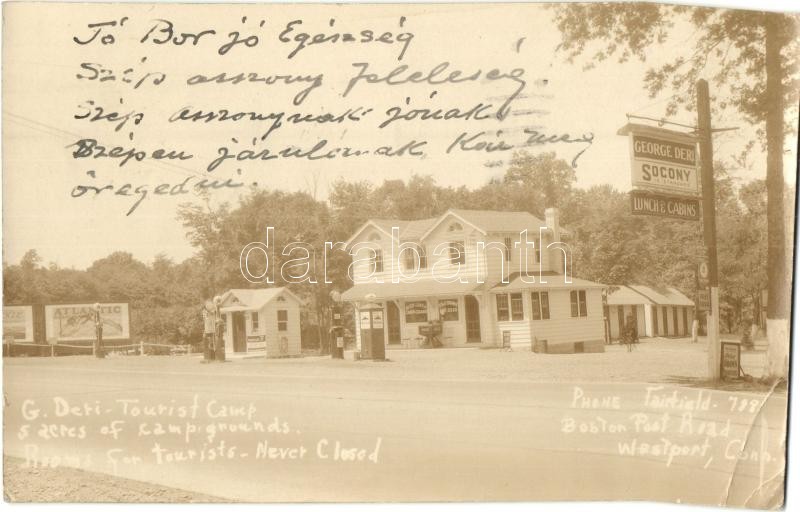 Jó Bor jó Egészség
Szép asszony feleleség.
Szép asszonynak jónak
Szépen járulónak, Kön meg
öregedni.
GEORGE DERI
SOCONY
LUNCH & CABINS
ATLANTIC
darabanth
G. Deri - Tourist Camp
5 acres of Kampgrounds.
Rooms for tourists - Never Closed
PHONE Fairfield - 788
Boston Post Road
Westport, Conn.